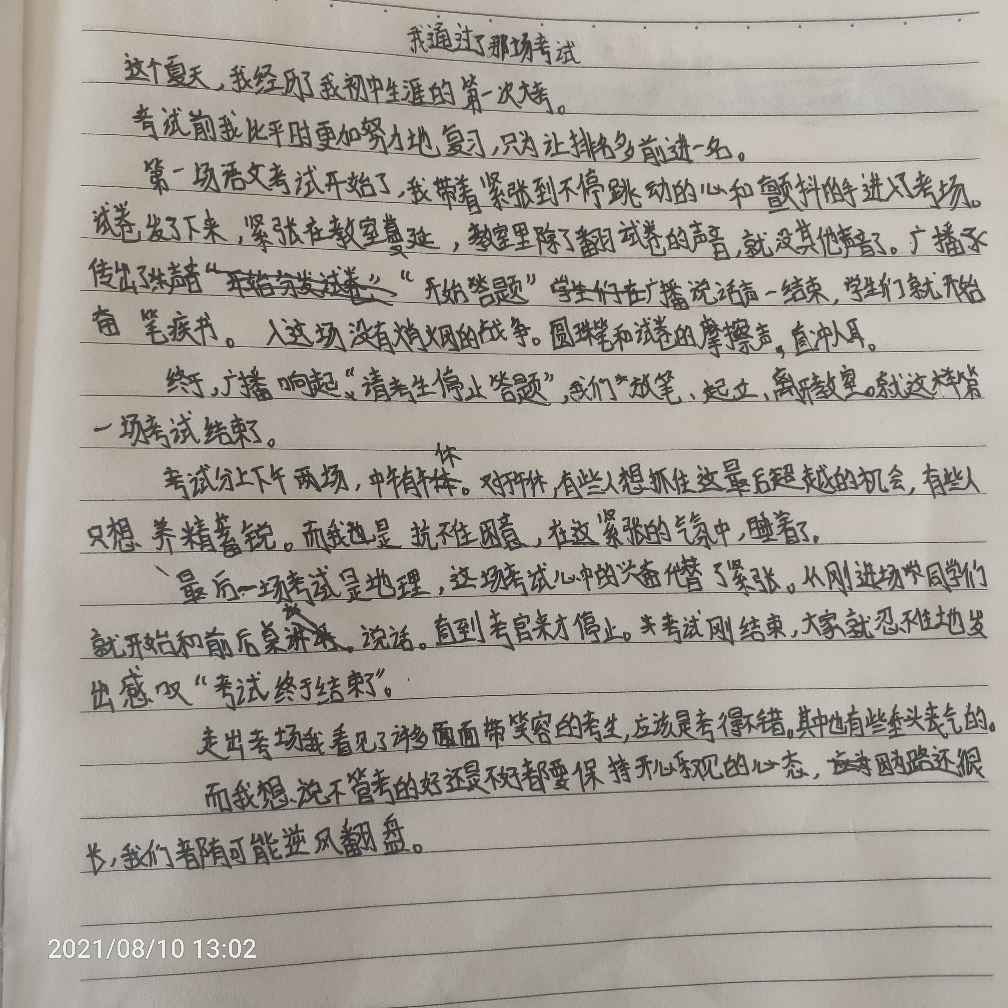 我通过了那场考试
这个夏天，我经历了我初中生涯的第一次大考。
考试前我比平时更加努力地复习，只为让排名多前进一名。
第一场语文考试开始了，我带着紧张到不停跳动的心和颤抖的手进入了考场。
试卷发了下来，紧张在教室蔓延，教室里除了翻试卷的声音，就没其他声音了。广播
传出了 声音 “开始答题”学生们在广播说话声一结束，学生们就开始
奋笔疾书。入这场没有硝烟的战争。圆珠笔和试卷的摩擦声，直冲人耳。
终于，广播响起“请考生停止答题”，我们 放笔、起立、离开教室。就这样第
一场考试结束了。
考试分上下午两场，中午有午休。对于午休，有些人想抓住这最后超越的机会，有些人
只想养精蓄锐。而我也是抗不住困意，在这紧张的气氛中，睡着了。
最后一场考试是地理，这场考试心中的兴奋代替了紧张。从刚进场 同学们
就开始和前后桌 说话。直到考官来才停止。 考试刚结束，大家就忍不住地发
出感叹“考试终于结束了”。
走出考场我看见了许多面带笑容的考生，应该是考得不错。其中也有些垂头丧气的。
而我想说不管考的好还是不好都要保持开心乐观的心态， 因为路还很
长，我们都有可能逆风翻盘。
2021/08/10 13:02